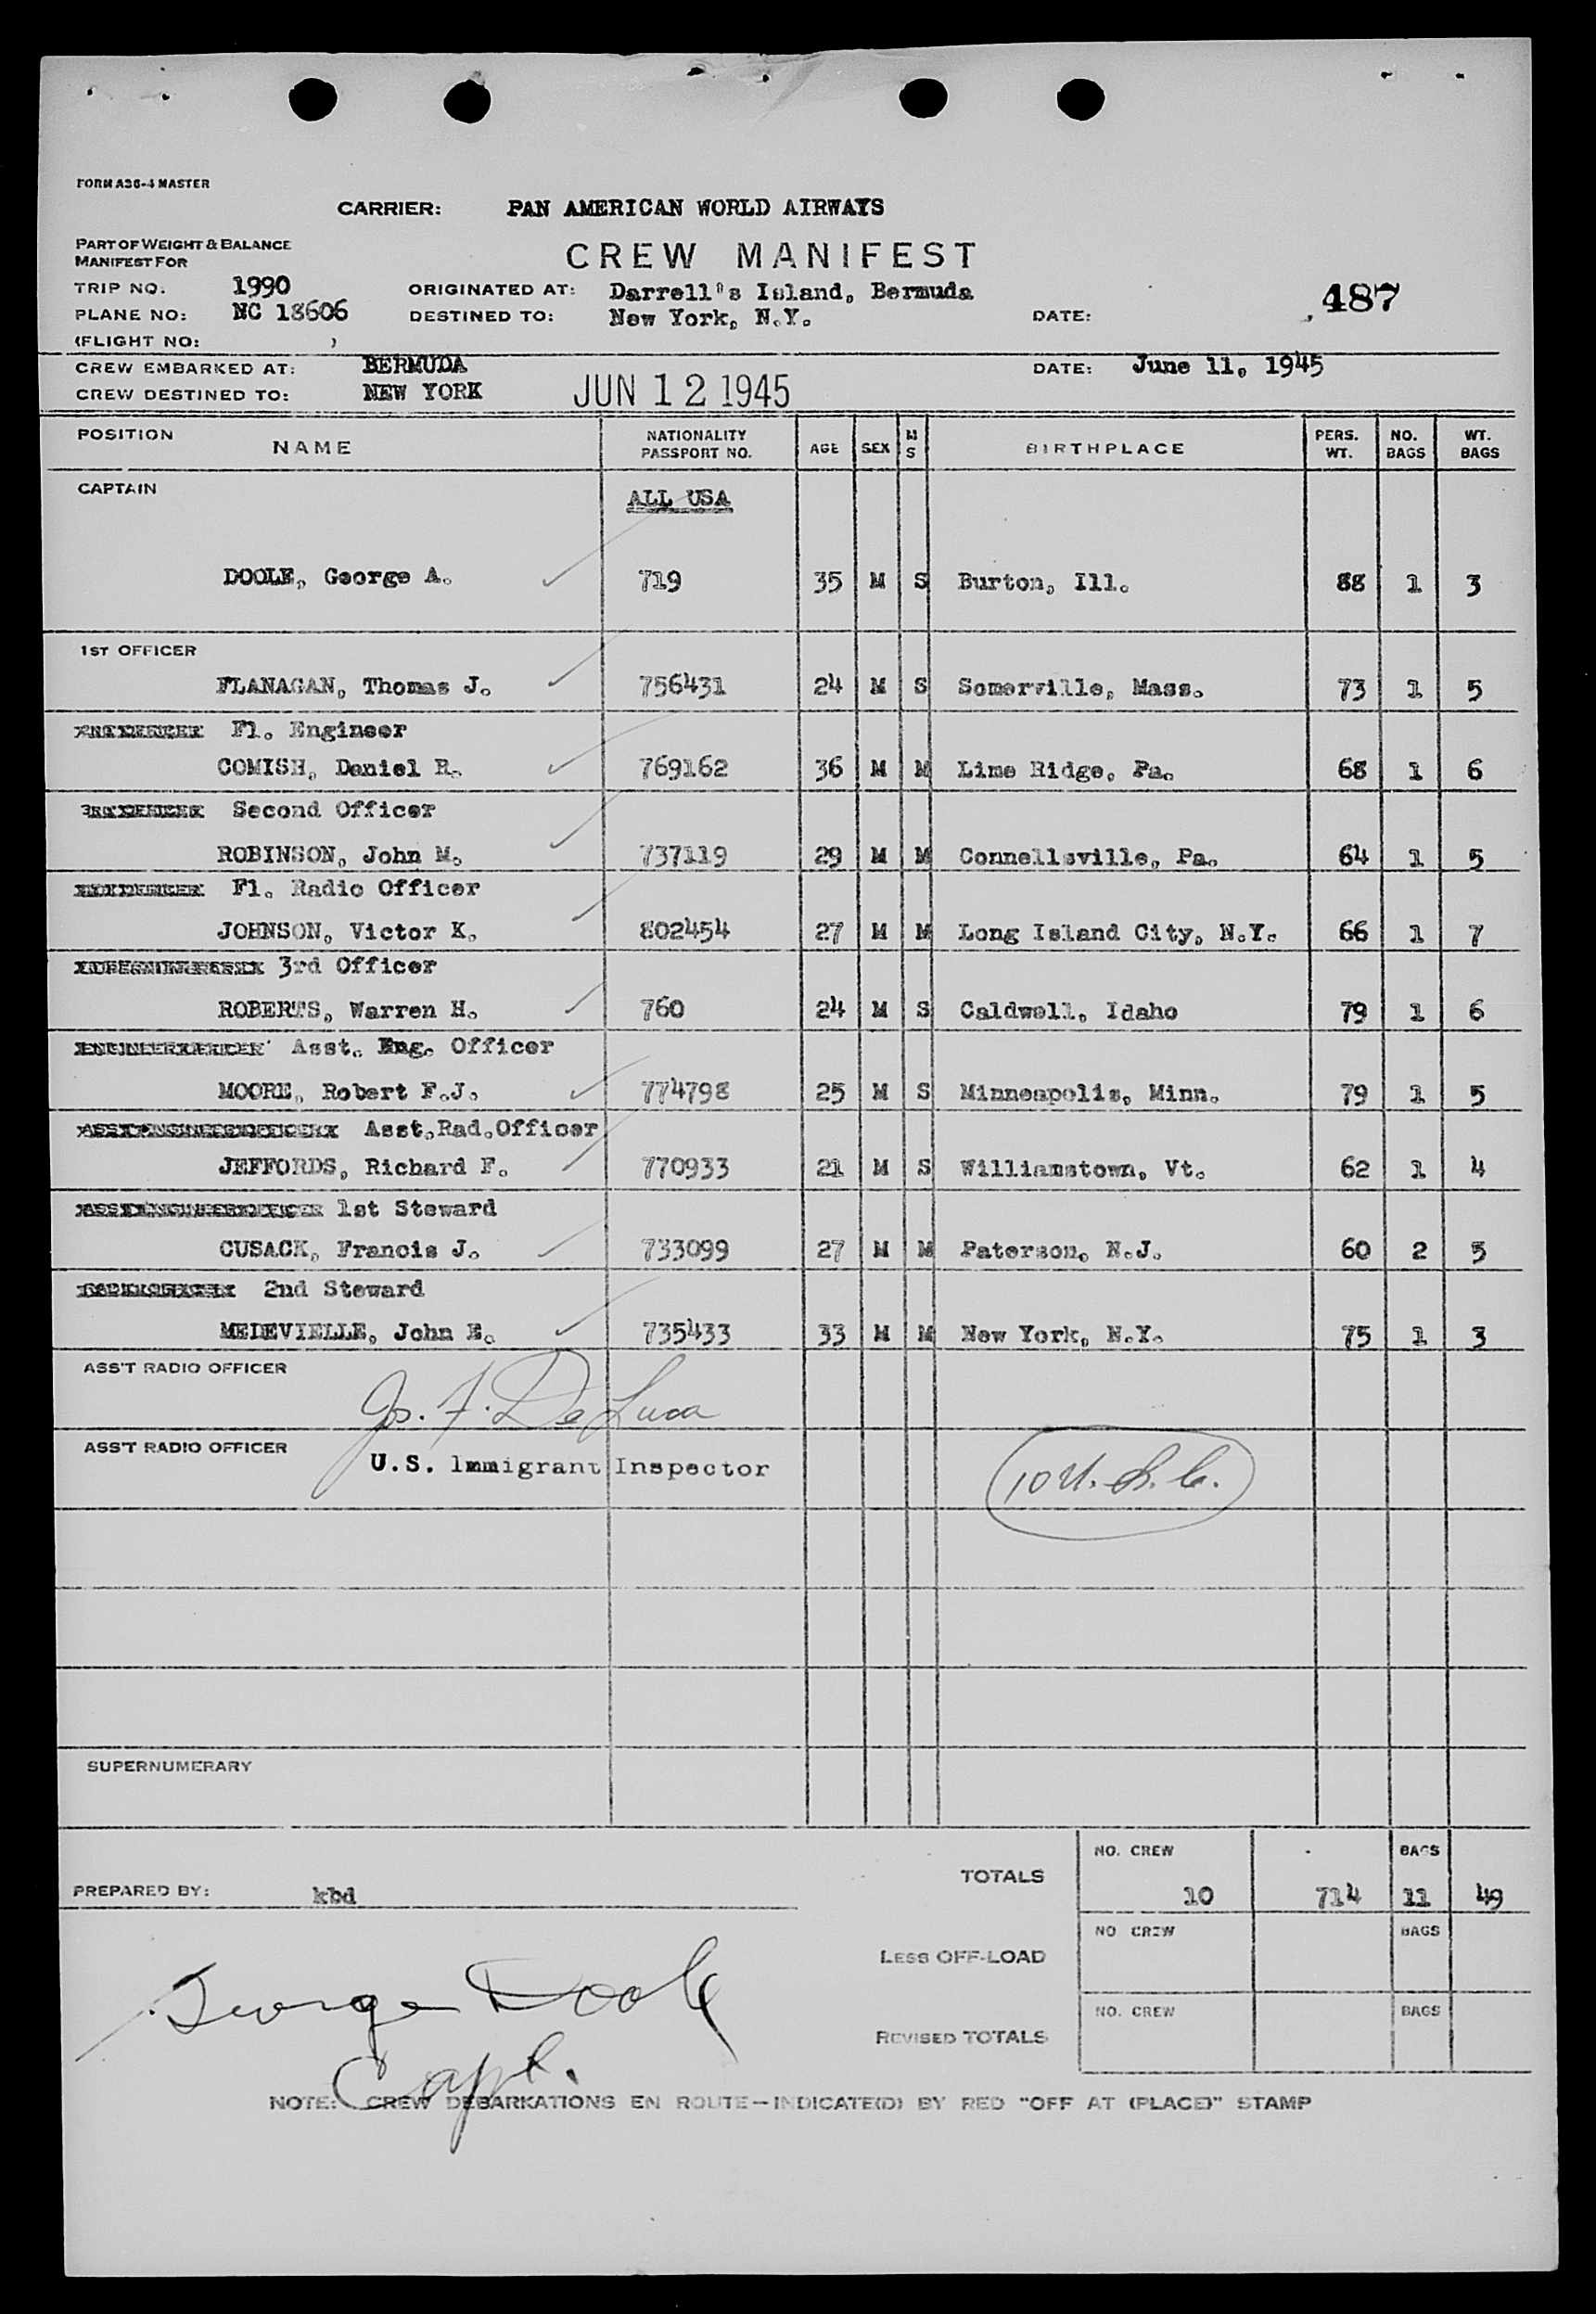 FORM A36-4 MASTER
CARRIER: PAN AMERICAN WORLD AIRWAYS
PART OF WEIGHT & BALANCE
MANIFEST FOR
CREW MANIFEST
TRIP NO. 1990 ORIGINATED AT: Darrell's Island, Bermuda 487
PLANE NO: NC 18606 DESTINED TO: New York, N.Y. DATE:
(FLIGHT NO: )
CREW EMBARKED AT: BERMUDA DATE: June 11, 1945
CREW DESTINED TO: NEW YORK JUN 12 1945
POSITION NAME NATIONALITY PASSPORT NO. AGE SEX M S BIRTHPLACE PERS. WT. NO. BAGS WT. BAGS
CAPTAIN ALL USA
DOOLE, George A. 719 35 M S Burton, Ill. 88 1 3
1ST OFFICER
FLANAGAN, Thomas J. 756431 24 M S Somerville, Mass. 73 1 5
Fl. Engineer
COMISH, Daniel R. 769162 36 M M Lime Ridge, Pa. 68 1 6
Second Officer
ROBINSON, John M. 737119 29 M M Connellsville, Pa. 64 1 5
Fl. Radio Officer
JOHNSON, Victor K. 802454 27 M M Long Island City, N.Y. 66 1 7
3rd Officer
ROBERTS, Warren H. 760 24 M S Caldwell, Idaho 79 1 6
Asst. Eng. Officer
MOORE, Robert F.J. 774798 25 M S Minneapolis, Minn. 79 1 5
Asst.Rad.Officer
JEFFORDS, Richard F. 770933 21 M S Williamstown, Vt. 62 1 4
1st Steward
CUSACK, Francis J. 733099 27 M M Paterson, N.J. 60 2 5
2nd Steward
MEDEVIELLE, John E. 735433 33 M M New York, N.Y. 75 1 3
ASS'T RADIO OFFICER
Jos. F. De Luca
ASS'T RADIO OFFICER
U.S. Immigrant Inspector
10 U.S.C.
SUPERNUMERARY
NO. CREW BAGS
TOTALS
PREPARED BY: kbd 10 714 11 49
NO CREW BAGS
LESS OFF-LOAD
George Doole
NO. CREW BAGS
REVISED TOTALS
Capt.
NOTE: CREW DEBARKATIONS EN ROUTE—INDICATE(D) BY RED "OFF AT (PLACE)" STAMP